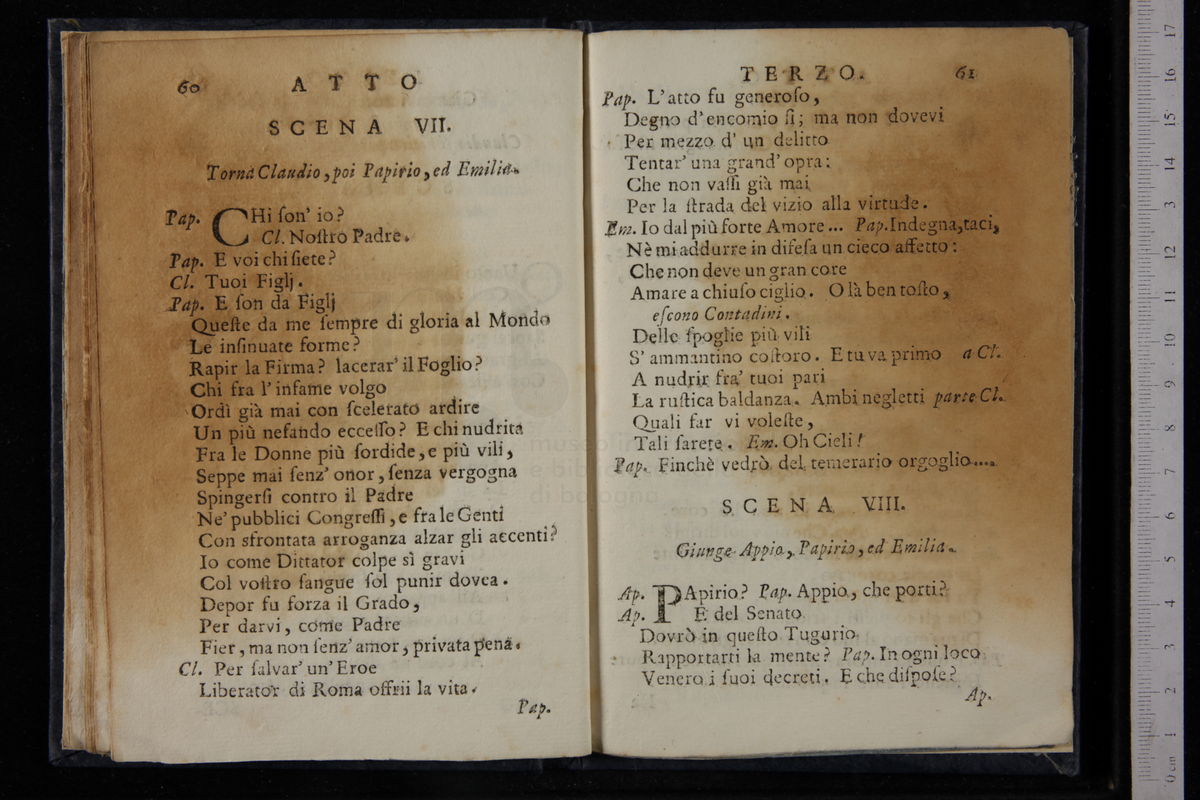 60 ATTO
SCENA VII.
Torna Claudio, poi Papirio, ed Emilia.
Pap. CHi ſon' io?
Cl. Noſtro Padre.
Pap. E voi chi ſiete?
Cl. Tuoi Figlj.
Pap. E ſon da Figlj
Queſte da me ſempre di gloria al Mondo
Le inſinuate forme?
Rapir la Firma? lacerar' il Foglio?
Chi fra l'infame volgo
Ordì già mai con ſcelerato ardire
Un più nefando ecceſſo? E chi nudrita
Fra le Donne più ſordide, e più vili,
Seppe mai ſenz' onor, ſenza vergogna
Spingerſi contro il Padre
Ne' pubblici Congreſſi, e fra le Genti
Con sfrontata arroganza alzar gli accenti?
Io come Dittator colpe sì gravi
Col voſtro ſangue ſol punir dovea.
Depor fu forza il Grado,
Per darvi, come Padre
Fier, ma non ſenz' amor, privata pena.
Cl. Per ſalvar' un' Eroe
Liberator di Roma offrii la vita.
Pap.
TERZO. 61
Pap. L'atto fu generoſo,
Degno d'encomio ſi; ma non dovevi
Per mezzo d' un delitto
Tentar' una grand' opra:
Che non vaſſi già mai
Per la ſtrada del vizio alla virtude.
Em. Io dal più forte Amore... Pap. Indegna, taci,
Nè mi addurre in difeſa un cieco affetto:
Che non deve un gran core
Amare a chiuſo ciglio. O là ben toſto,
eſcono Contadini.
Delle ſpoglie più vili
S' ammantino coſtoro. E tu va primo a Cl.
A nudrir fra' tuoi pari
La ruſtica baldanza. Ambi negletti parte Cl.
Quali far vi voleſte,
Tali ſarete. Em. Oh Cieli!
Pap. Finchè vedrò del temerario orgoglio....
SCENA VIII.
Giunge Appio, Papirio, ed Emilia.
Ap. PApirio? Pap. Appio, che porti?
Ap. E del Senato
Dovrò in queſto Tugurio
Rapportarti la mente? Pap. In ogni loco
Venero i ſuoi decreti. E che diſpoſe?
Ap.